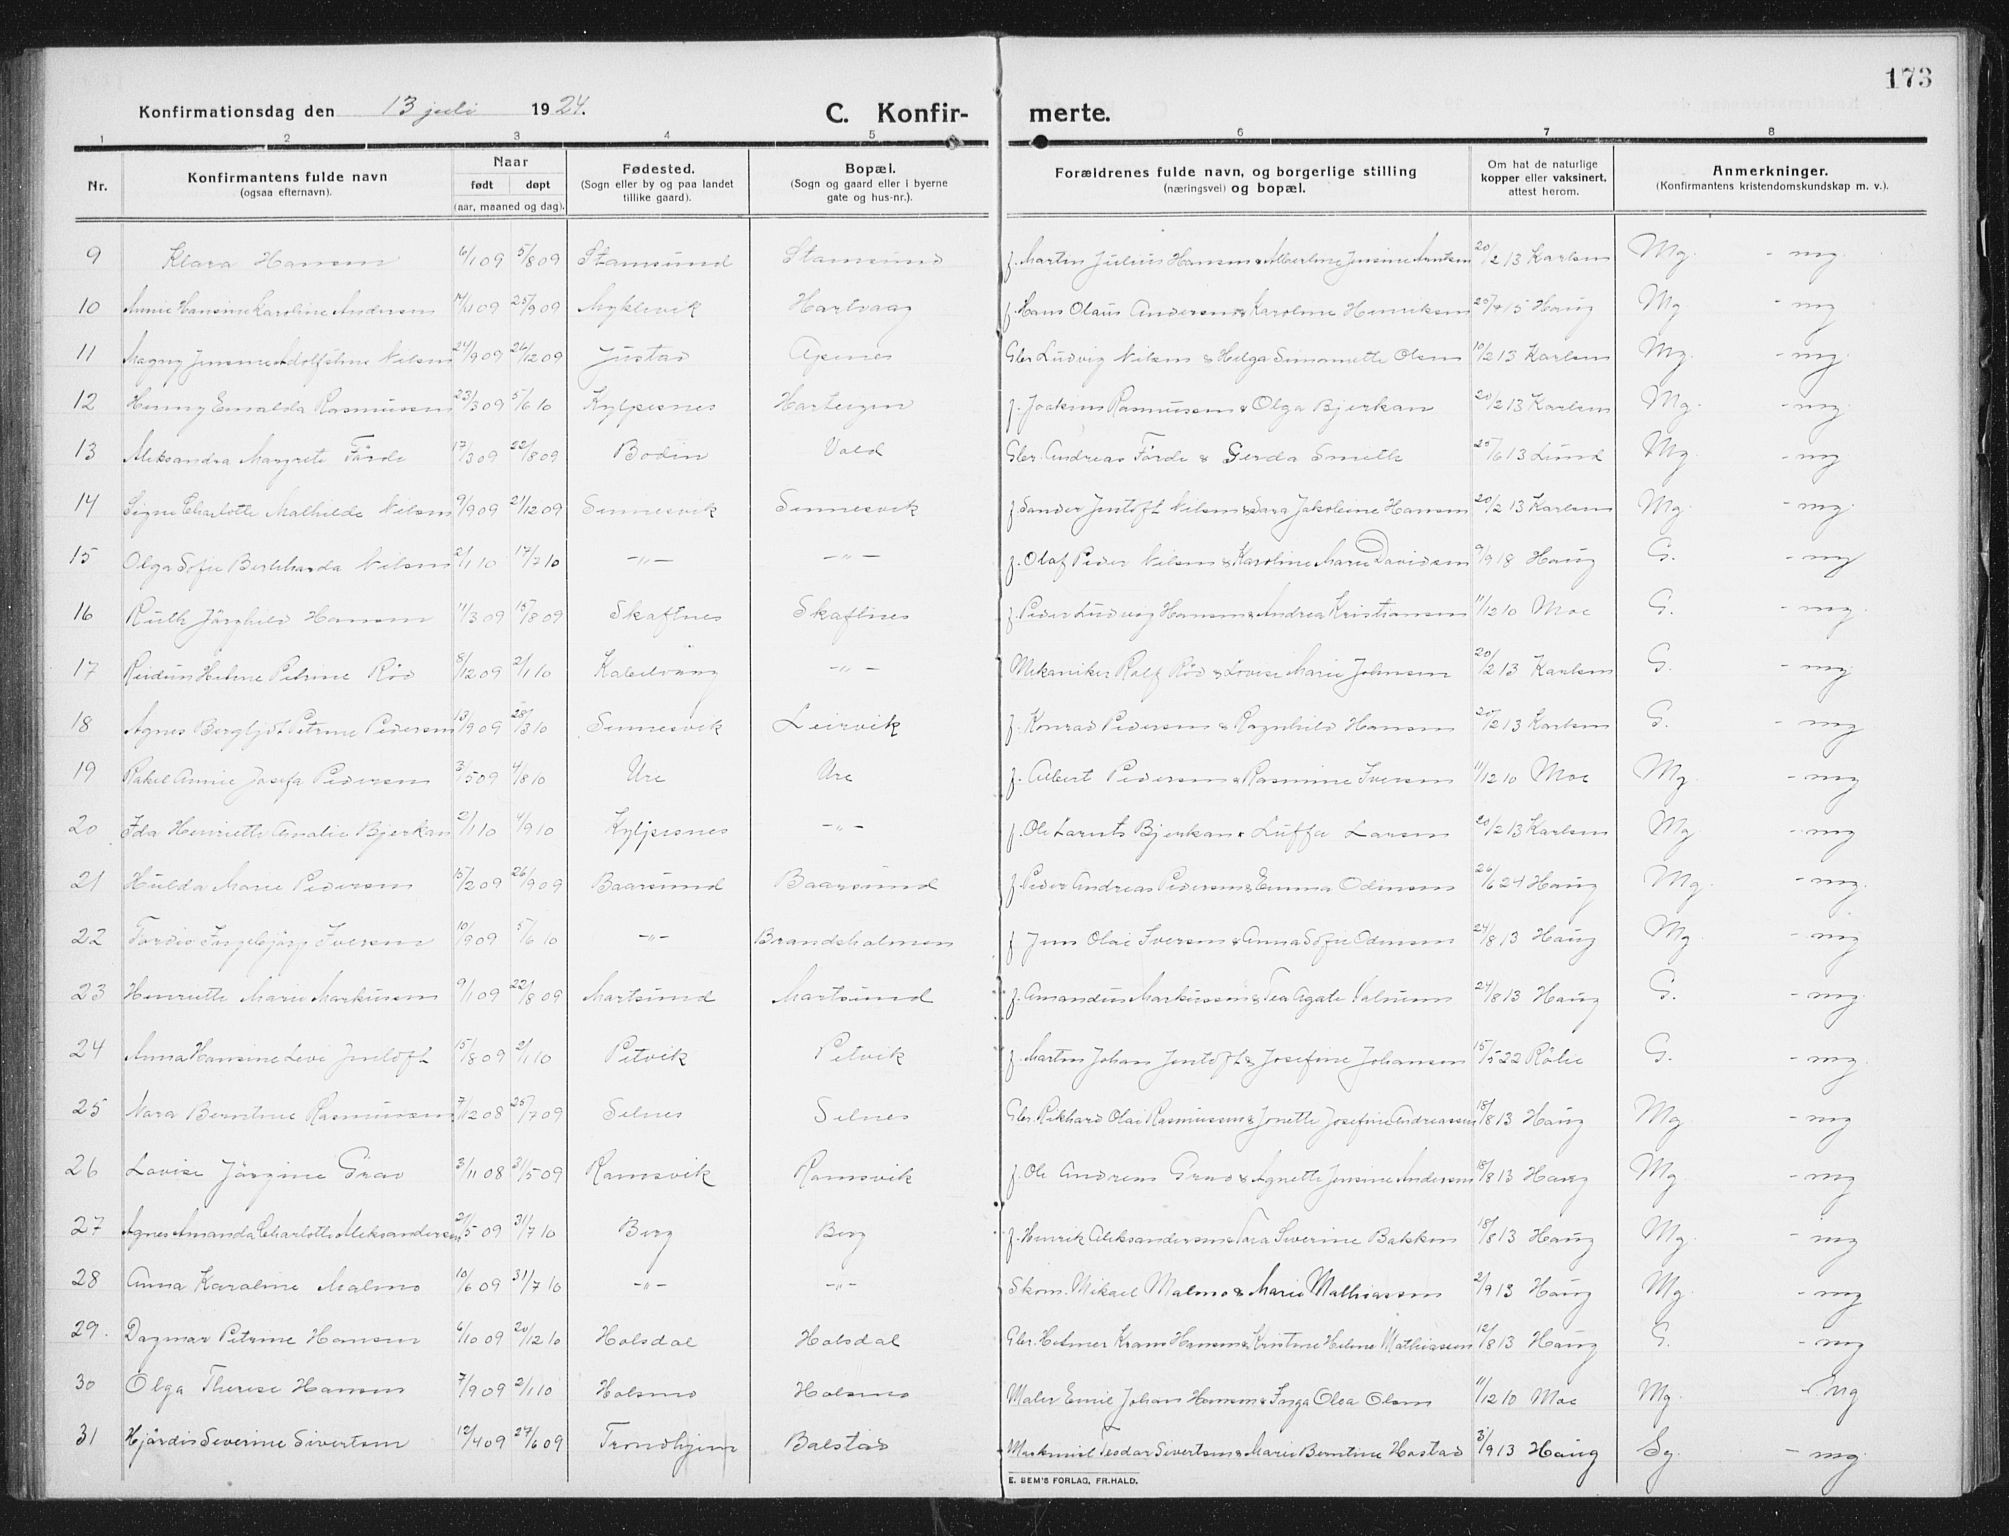 173
Konfirmationsdag den 13 juli 1924.
C. Konfir- merte.
1 2 3 4 5 6 7 8
Nr.
Konfirmantens fulde navn
(ogsaa efternavn).
Naar
født døpt
(aar, maaned og dag).
Fødested.
(Sogn eller by og paa landet
tillike gaard).
Bopæl.
(Sogn og gaard eller i byerne
gate og hus-nr.).
Forældrenes fulde navn, og borgerlige stilling
(næringsvei) og bopæl.
Om hat de naturlige
kopper eller vaksinert,
attest herom.
Anmerkninger.
(Konfirmantens kristendomskundskap m. v.).
9 Klara Hansen 6/1 09 5/8 09 Stamsund Stamsund f. Martin Julius Hansen & Albertine Jensine 20/2 13 Karlsen Mg. - mg.
10 Annie Hansine Karoline Andersen 14/1 09 25/9 09 Myklevik Hartvaag f. Hans Olaus Andersen & Karoline Henriksen 25/4 15 Haug Mg - mg
11 Magny Jensine Adolfstine Nilsen 24/9 09 26/12 09 Justad Apenes Gbr. Ludvig Nilsen & Helga Simonette Olsen 10/2 13 Karlsen Mg. - mg.
12 Henny Emalda Rasmussen 23/3 09 5/6 10 Kylpesnes f. Joakim Rasmussen & Olga Bjerkan 20/2 13 Karlsen Mg. - mg.
13 Aleksandra Margrete Förde 17/3 09 22/8 09 Bodin Vold Gbr. Andreas Förde & Gerda Smeth 25/6 13 Lund Mg. - mg
14 Signe Charlotte Mathilde Nilsen 9/9 09 21/12 09 Sennesvik Sennesvik f. Sander Jentoft Nilsen & Sara Jakobine Hansen 20/2 13 Karlsen Mg. - mg.
15 Olga Sofie Berthharda Nilsen 2/1 10 17/7 10 -"- -"- f. Olaf Peder Nilsen & Karoline Marie Davidsen 9/9 18 Haug G. - mg
16 Ruth Jörghild Hansen 11/3 09 15/8 09 Skaftnes Skaftnes f. Peder Ludvig Hansen & Andrea Kristiansen 11/12 10 Moe G. - mg.
17 Reidun Helene Petrine Röd 8/12 09 2/1 10 Kabelvaag -"- Mekaniker Rolf Röd & Lovise Marie Johnsen 20/2 13 Karlsen G. - mg.
18 Agnes Bergljot Petrine Pedersen 13/9 09 28/3 10 Sennesvik Leirvik f. Konrad Pedersen & Ragnhild Hansen 20/2 13 Karlsen G. - mg.
19 Rakel Annie Josefa Pedersen 3/5 09 4/8 10 Ure Ure f. Albert Pedersen & Rasmine Iversen 11/12 10 Moe Mg. - mg
20 Ida Henriette Amalie Bjerkan 2/1 10 4/9 10 Kylpesnes -"- f. Ole Larents Bjerkan & Luffa Larsen 20/2 13 Karlsen Mg. - mg.
21 Hulda Marie Pedersen 15/2 09 26/9 09 Baarsund Baarsund f. Peder Andreas Pedersen & Emma Odinsen 26/6 24 Haug Mg. - mg.
22 Tordis Ingebjörg Iversen 10/9 09 5/6 10 -"- Brandsholmen f. Jens Olai Iversen & Anna Sofie Odinsen 24/8 13 Haug Mg. - mg
23 Henriette Marie Markussen 9/1 09 22/8 09 Mortsund Mortsund f. Amandus Markussen & Tea Agate 24/8 13 Haug G. - mg.
24 Anna Hansine Levi Jentoft 15/8 09 2/1 10 Petvik Petvik f. Martin Johan Jentoft & Josefine Johansen 15/5 22 Rölie G. - mg
25 Nora Berntine Rasmussen 7/12 08 25/7 09 Selnes Selnes Gbr. Rikhard Olai Rasmussen & Jonette Josefine Andreassen 18/8 13 Haug Mg. - mg
26 Lovise Jörgine Grav 3/11 08 31/5 09 Ramsvik Ramsvik f. Ole Andreas Grav & Agnette Jensine Andersen 18/8 13 Haug Mg. - mg
27 Agnes Amanda Charlotte Aleksandersen 2/5 09 31/7 10 Berg Berg f. Henrik Aleksandersen & Tora Severine Bakken 18/8 13 Haug Mg. - mg
28 Anna Karoline Malmo 10/6 09 31/7 10 -"- -"- Skom. Mikael Malmo & Marie Mathiassen 2/9 13 Haug Mg. - mg
29. Dagmar Petrine Hansen 6/10 09 20/12 10 Holsdal Holsdal Gbr. Helmer Krans Hansen & Kristine Helene Mathiassen 12/8 13 Haug G. - mg
30 Olga Therese Hansen 7/9 09 2/1 10 Holsmo Holsmo Maler Emil Johan Hansen & Inga Olea Olsen 11/12 10 Moe Mg. - Mg
31 Hjördis Severine Sivertsen 12/4 09 27/6 09 Trondhjem Balstad Teodor Sivertsen & Marie Berntine Hostad 3/9 13 Haug Sg. - mg.
E. SEM'S FORLAG, FR.HALD.